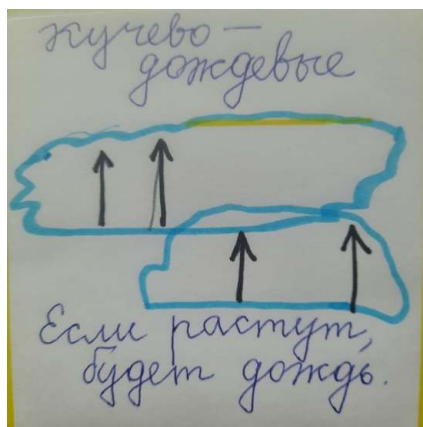 кучево —
дождевые
Если растут,
будет дождь.